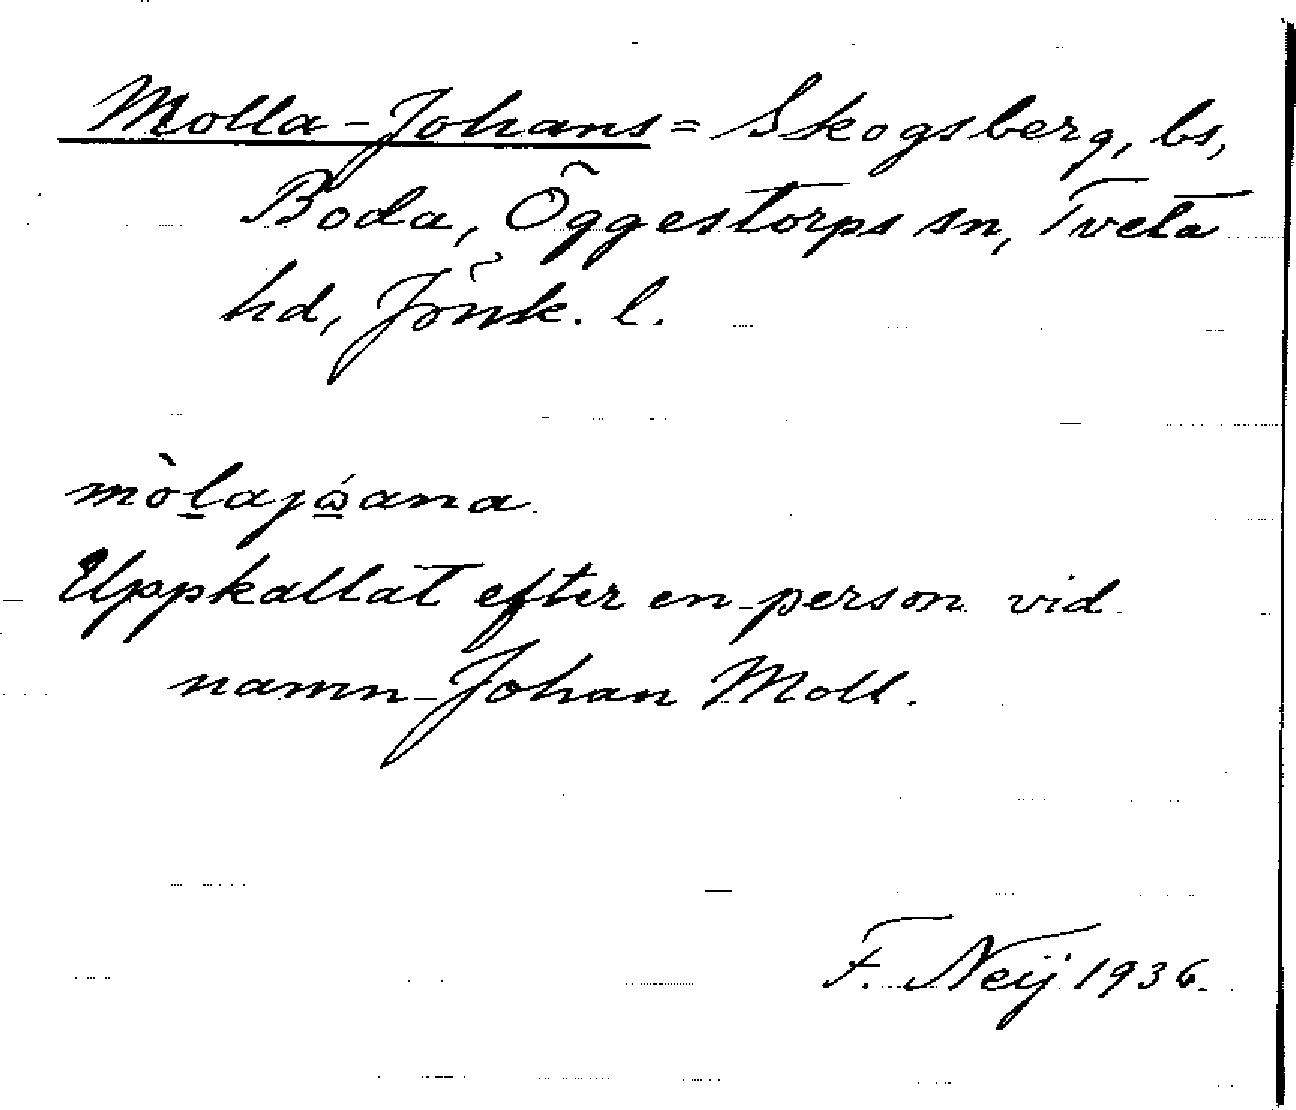 Molla-Johans = Skogsberg, bs,
Boda, Öggestorps sn, Tveta
hd, Jönk. l.
mòl̲ajώ̲ana
Uppkallat efter en person vid
namn Johan Moll.
F. Neij 1936.